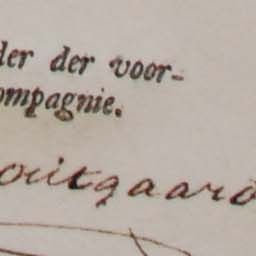 der der voor-
ompagnie.
outgaard